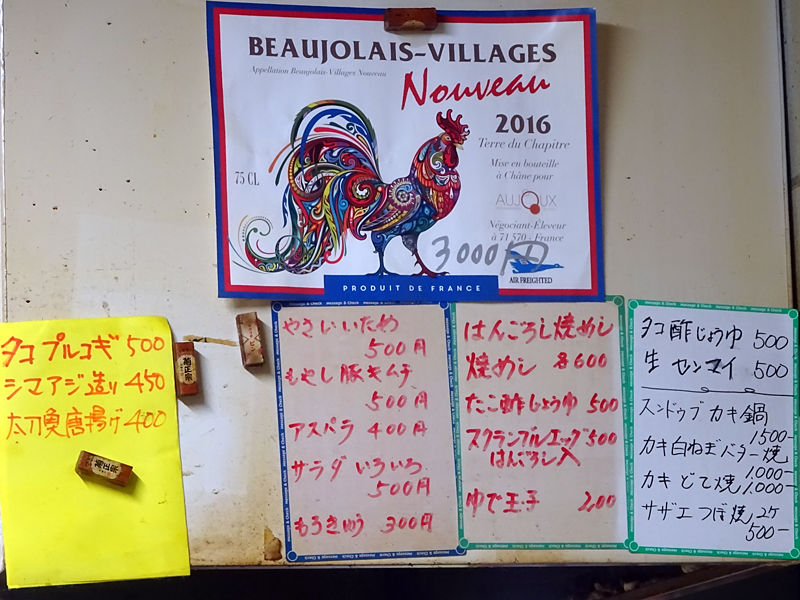 BEAUJOLAIS-VILLAGES
Appellation Beaujolais-Villages Nouveau
Nouveau
2016
Terre du Chapitre
Mise en bouteille
à Châne pour
75 CL
AUJOUX
Négociant-Éleveur
à 71 570 - France
3000
AIR FREIGHTED
PRODUIT DE FRANCE
タコ プルコギ 500
シマアジ造り 450
太刀魚唐揚げ 400
菊正宗
菊正宗
Message & Check
やさいいため
500円
もやし豚キムチ
500円
アスパラ 400円
サラダいろいろ
500円
もろきゅう 300円
Message & Check
はんごろし焼めし
焼めし 各600
たこ酢じょうゆ 500
スクランブルエッグ 500
はんごろし入
ゆで玉子 2,00
Message & Check
タコ酢じょうゆ 500
生センマイ 500
スンドゥブ カキ鍋
1500-
カキ白ねぎバター焼
1,000-
カキ どて焼 1,000-
サザエつぼ焼 2ケ
500-